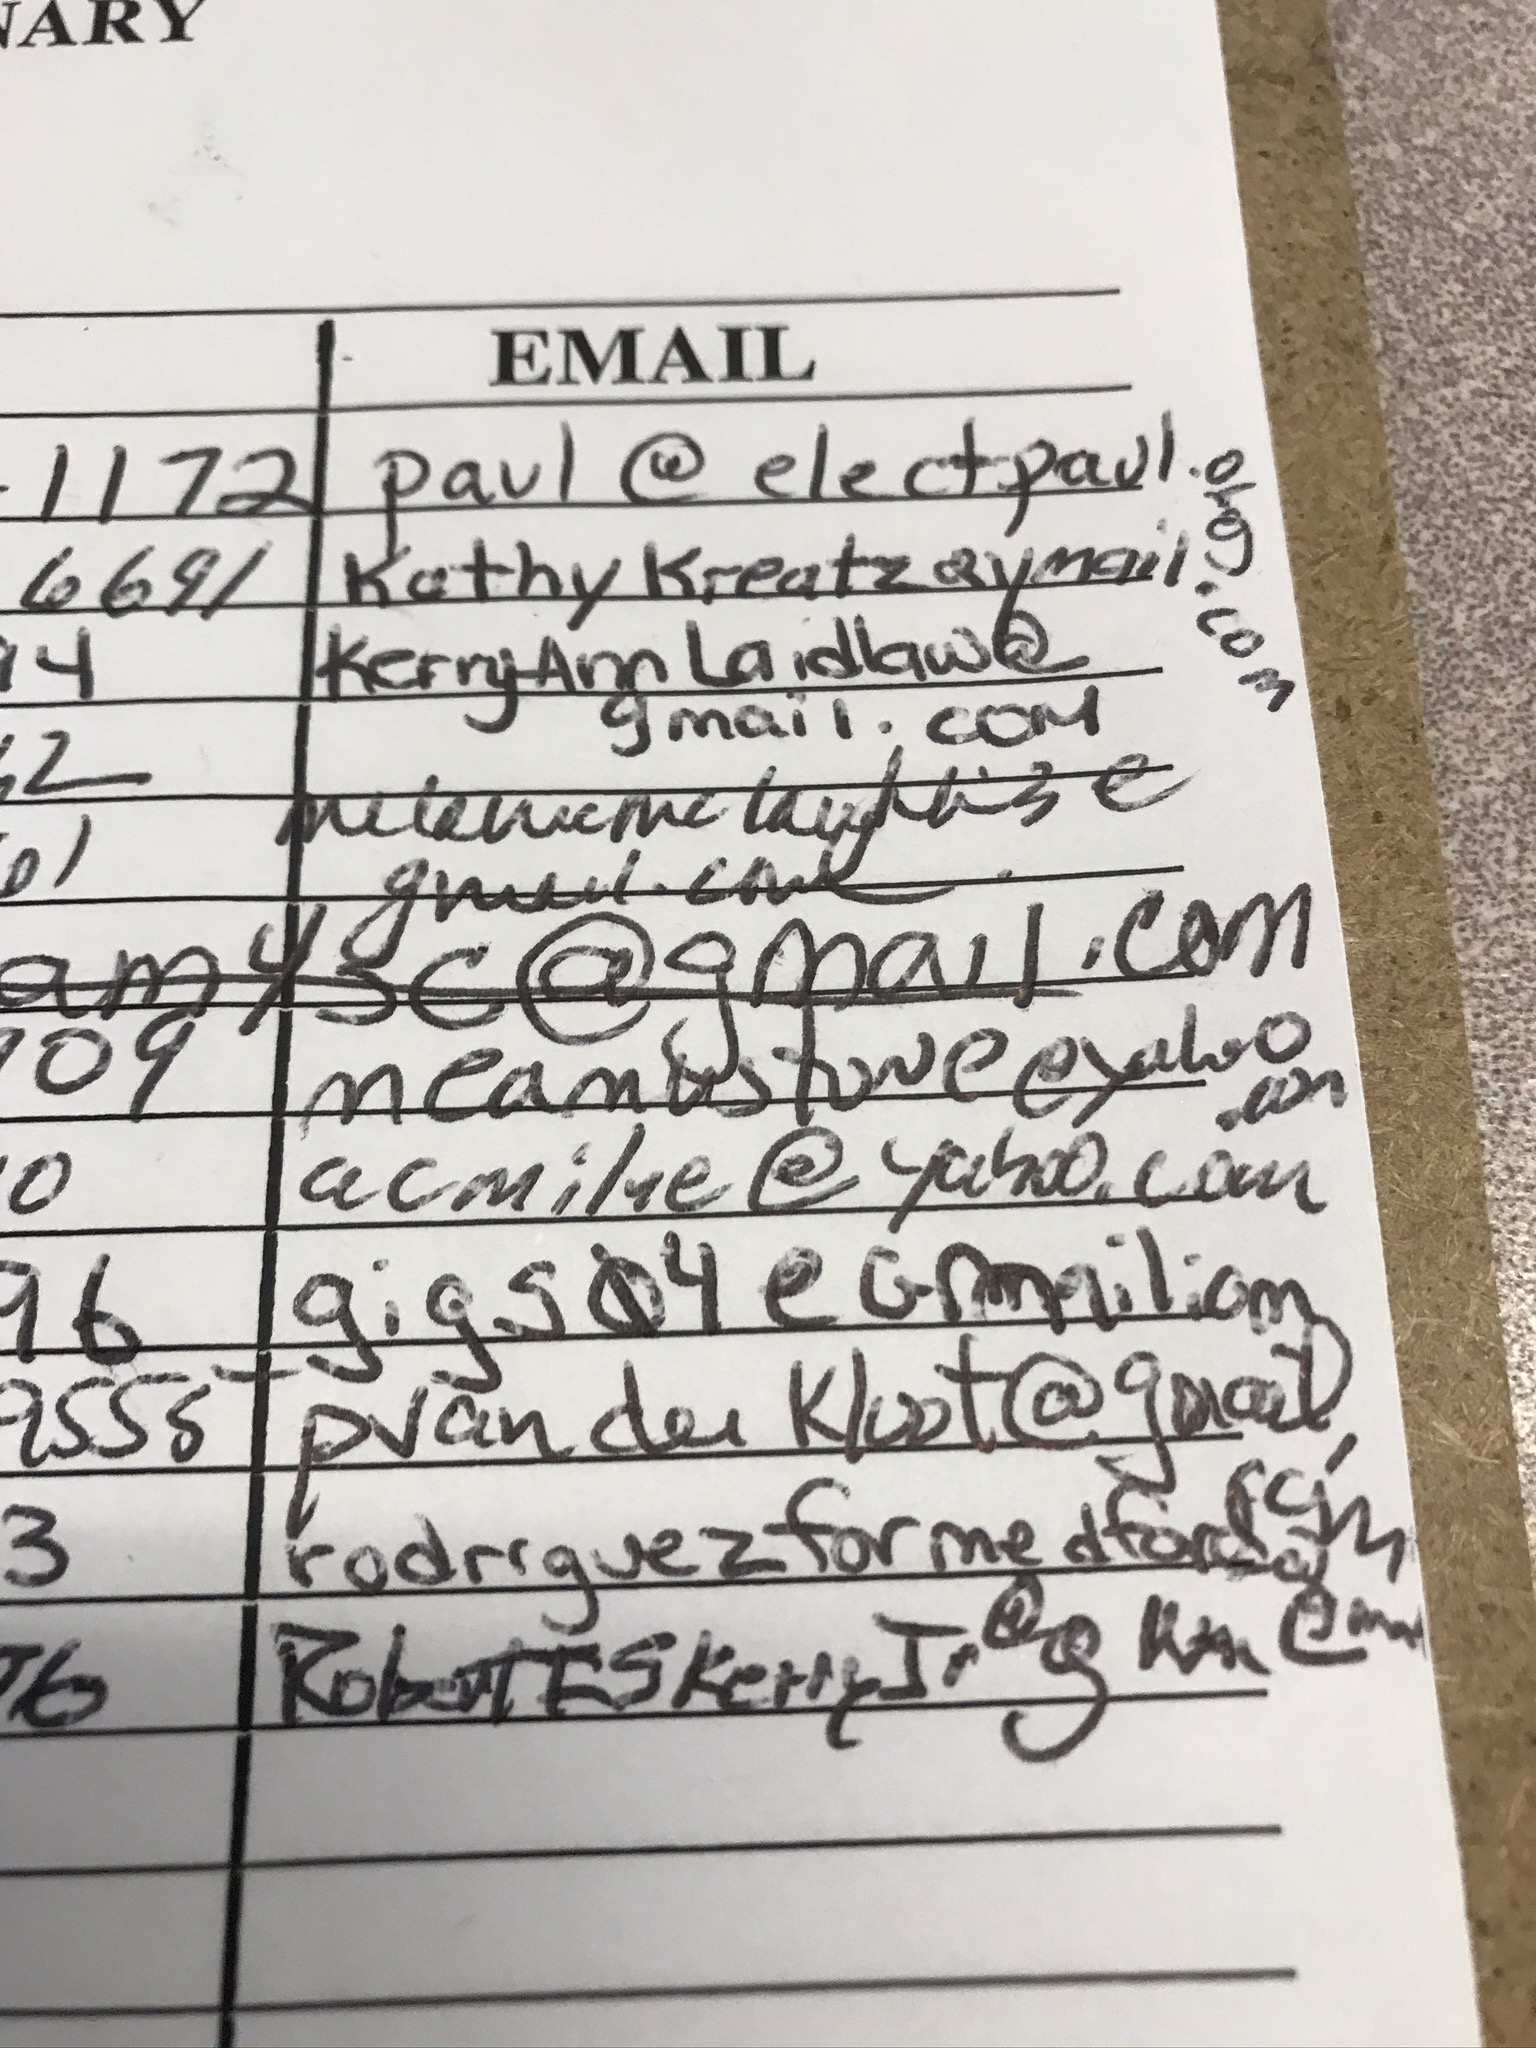 NARY
EMAIL
-1172 paul@electpaul.org
6691 KathyKreatz@ymail.com
94 KerryAnnLaidlaw@
gmail.com
62
01 gmail.com
am43c@gmail.com
709 @yahoo.com
10 acmilne@yahoo.com
96 gigs04@Gmail.com
9555 pvanderkloot@gmail.com
3 rodriguezformedford@
76 RobertESkerryJr@